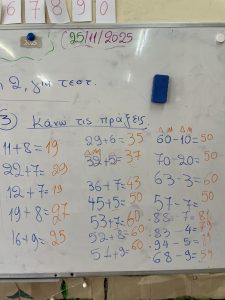 6 7 8 9 0
25/11/2025
2, για τεστ.
3) Κάνω τις πράξεις
11+8=19
22+7=29
12+7=19
19+8=27
16+9=25
29+6=35
ΔΜ
32+5=37
36+7=43
45+5=50
53+7=60
52+8=60
51+9=60
ΔΜ ΔΜ
60-10=50
70-20=50
63-3=60
57-7=50
88-7=81
83-4=79
94-5=
68-9=59